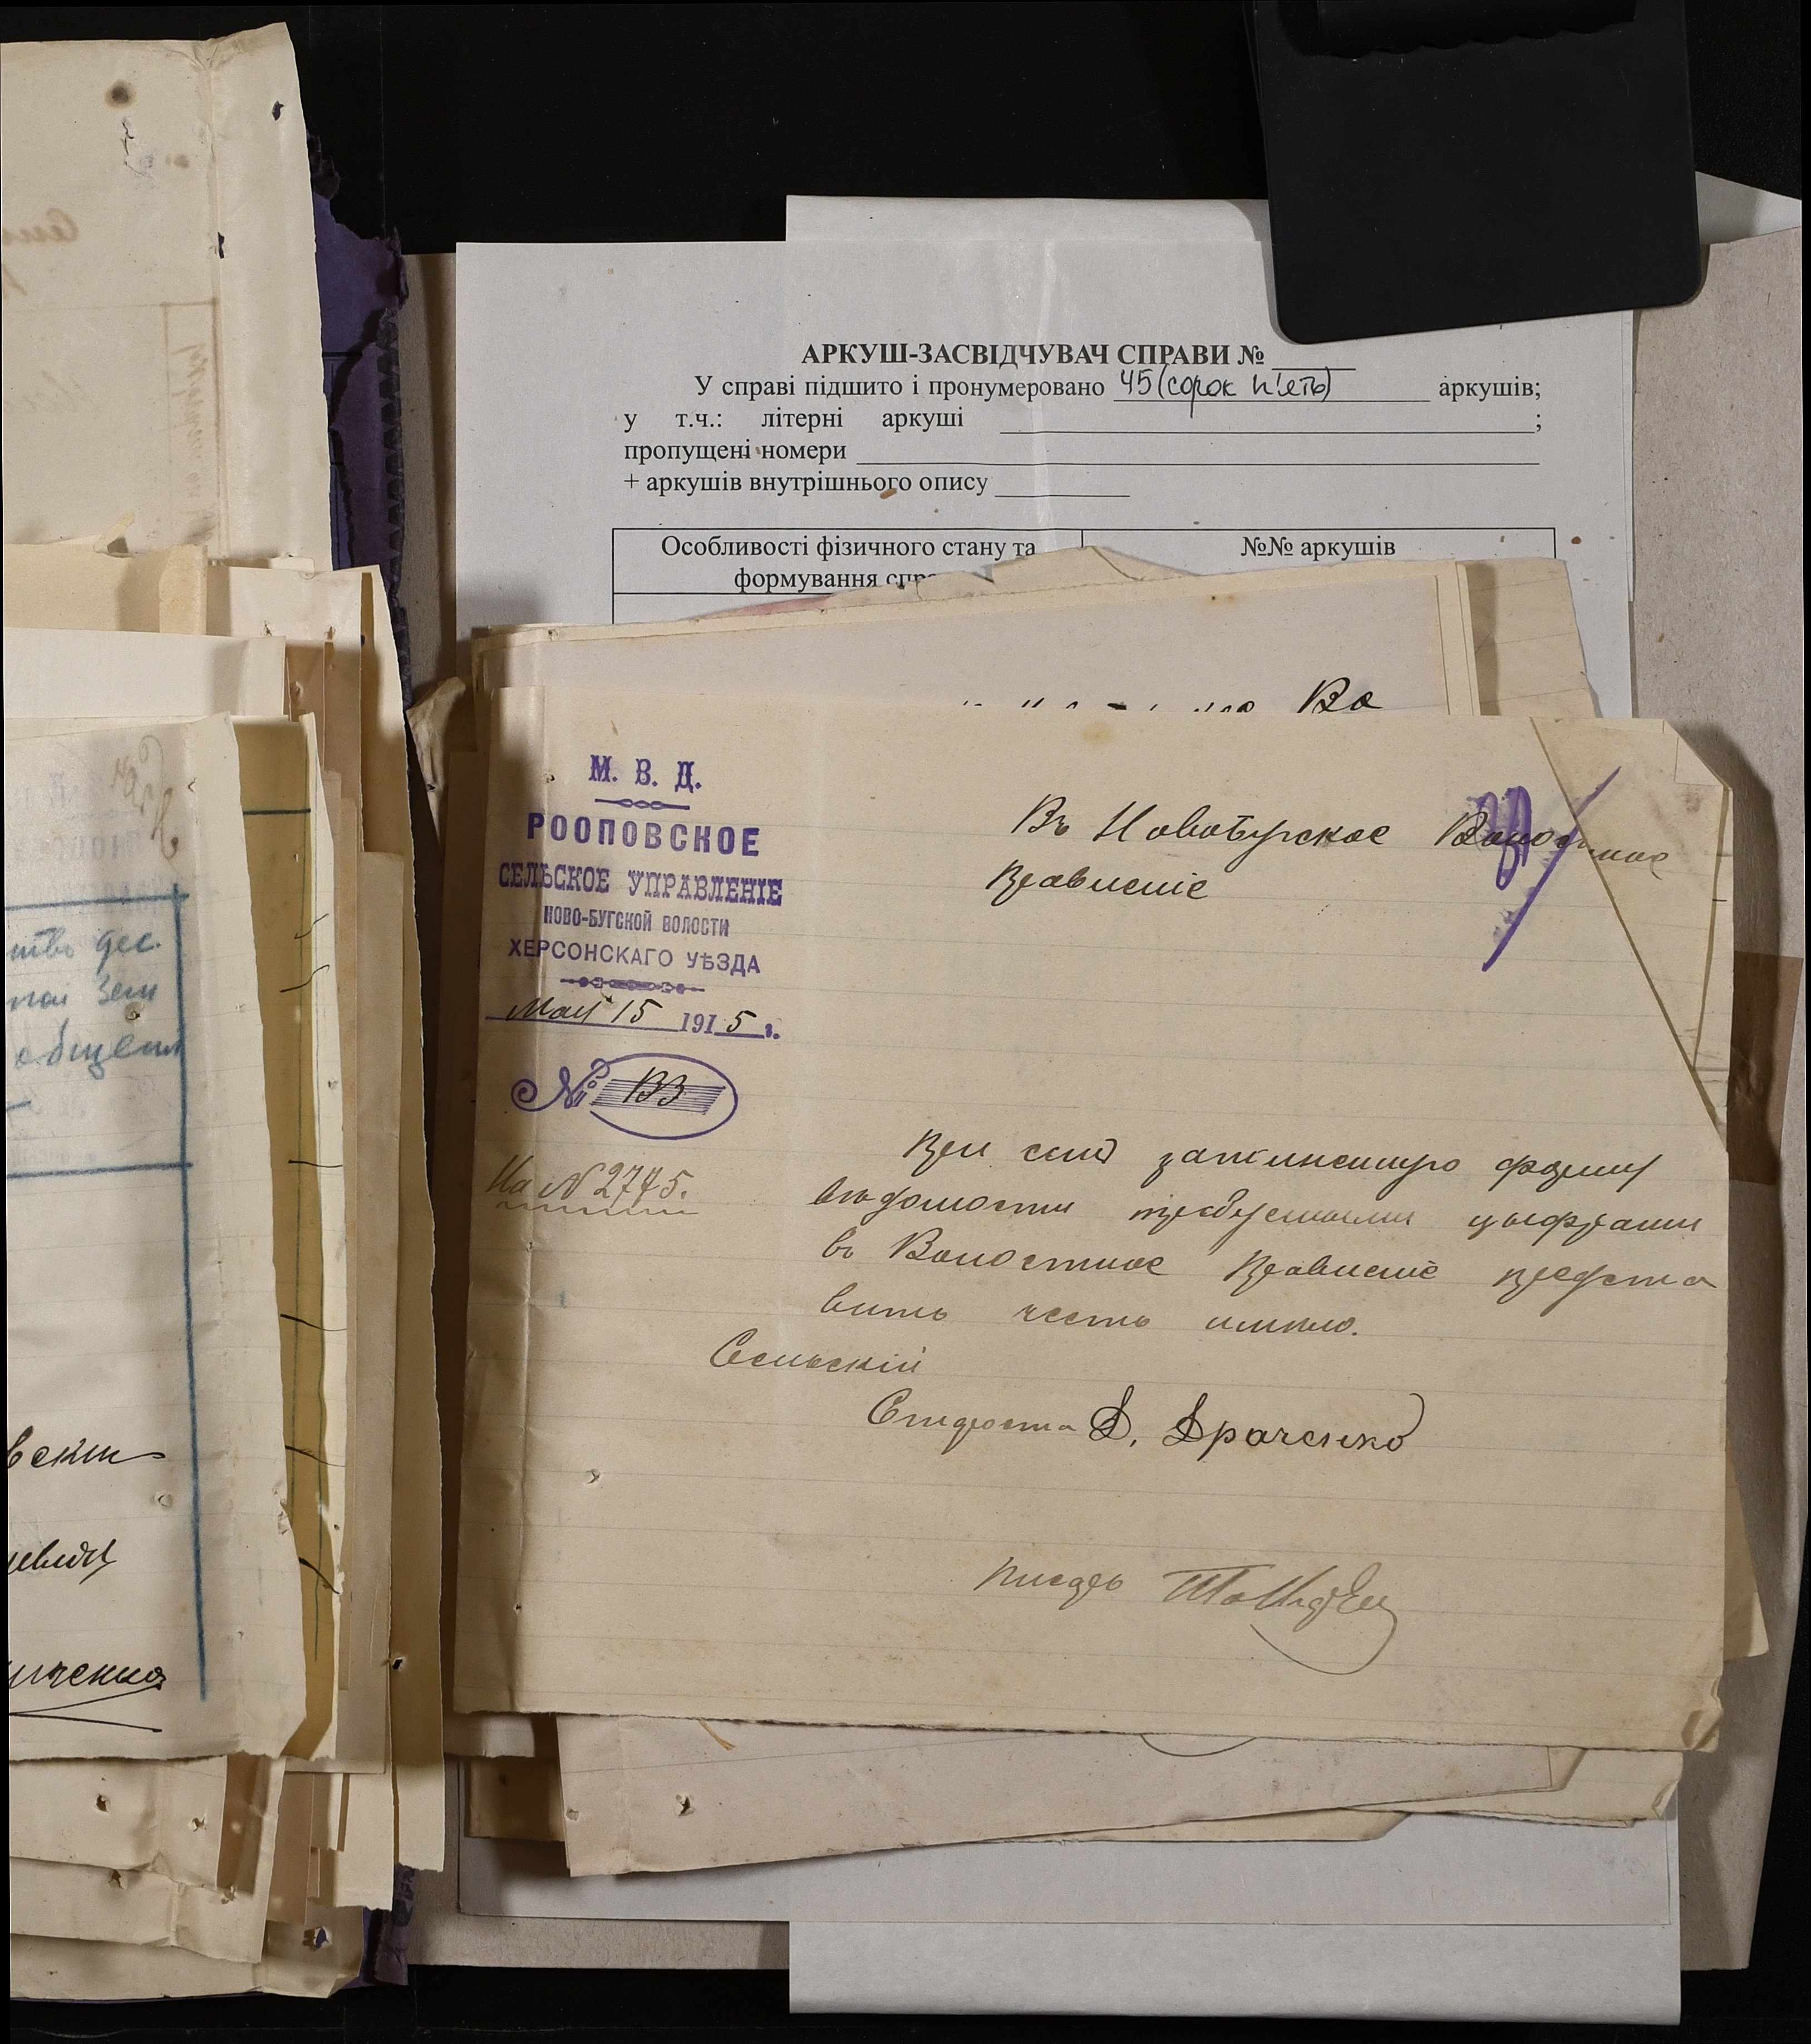 АРКУШ-ЗАСВІДЧУВАЧ СПРАВИ №
У справі підшито і пронумеровано 45 (сорок п'ять) аркушів;
у т.ч.: літерні аркуші ;
пропущені номери
+ аркушів внутрішнього опису
Особливості фізичного стану та
формування спра
№№ аркушів
Во
М. В. Д.
РООПОВСКОЕ
СЕЛЬСКОЕ УПРАВЛЕНІЕ
НОВО-БУГСКОЙ ВОЛОСТИ
ХЕРСОНСКАГО УѢЗДА
Мая 15 1915 г.
№ 133
На № 2745.
Въ Новобугское Волостное
Правленіе
При семъ заполненную форму
вѣдомости требуемыми цыфрами
въ Волостное Правленіе предста
вить честь имѣю.
Сельскій
Староста Д. Драченко
Писарь
тво дес.
ной зем
общем
вский
иченко